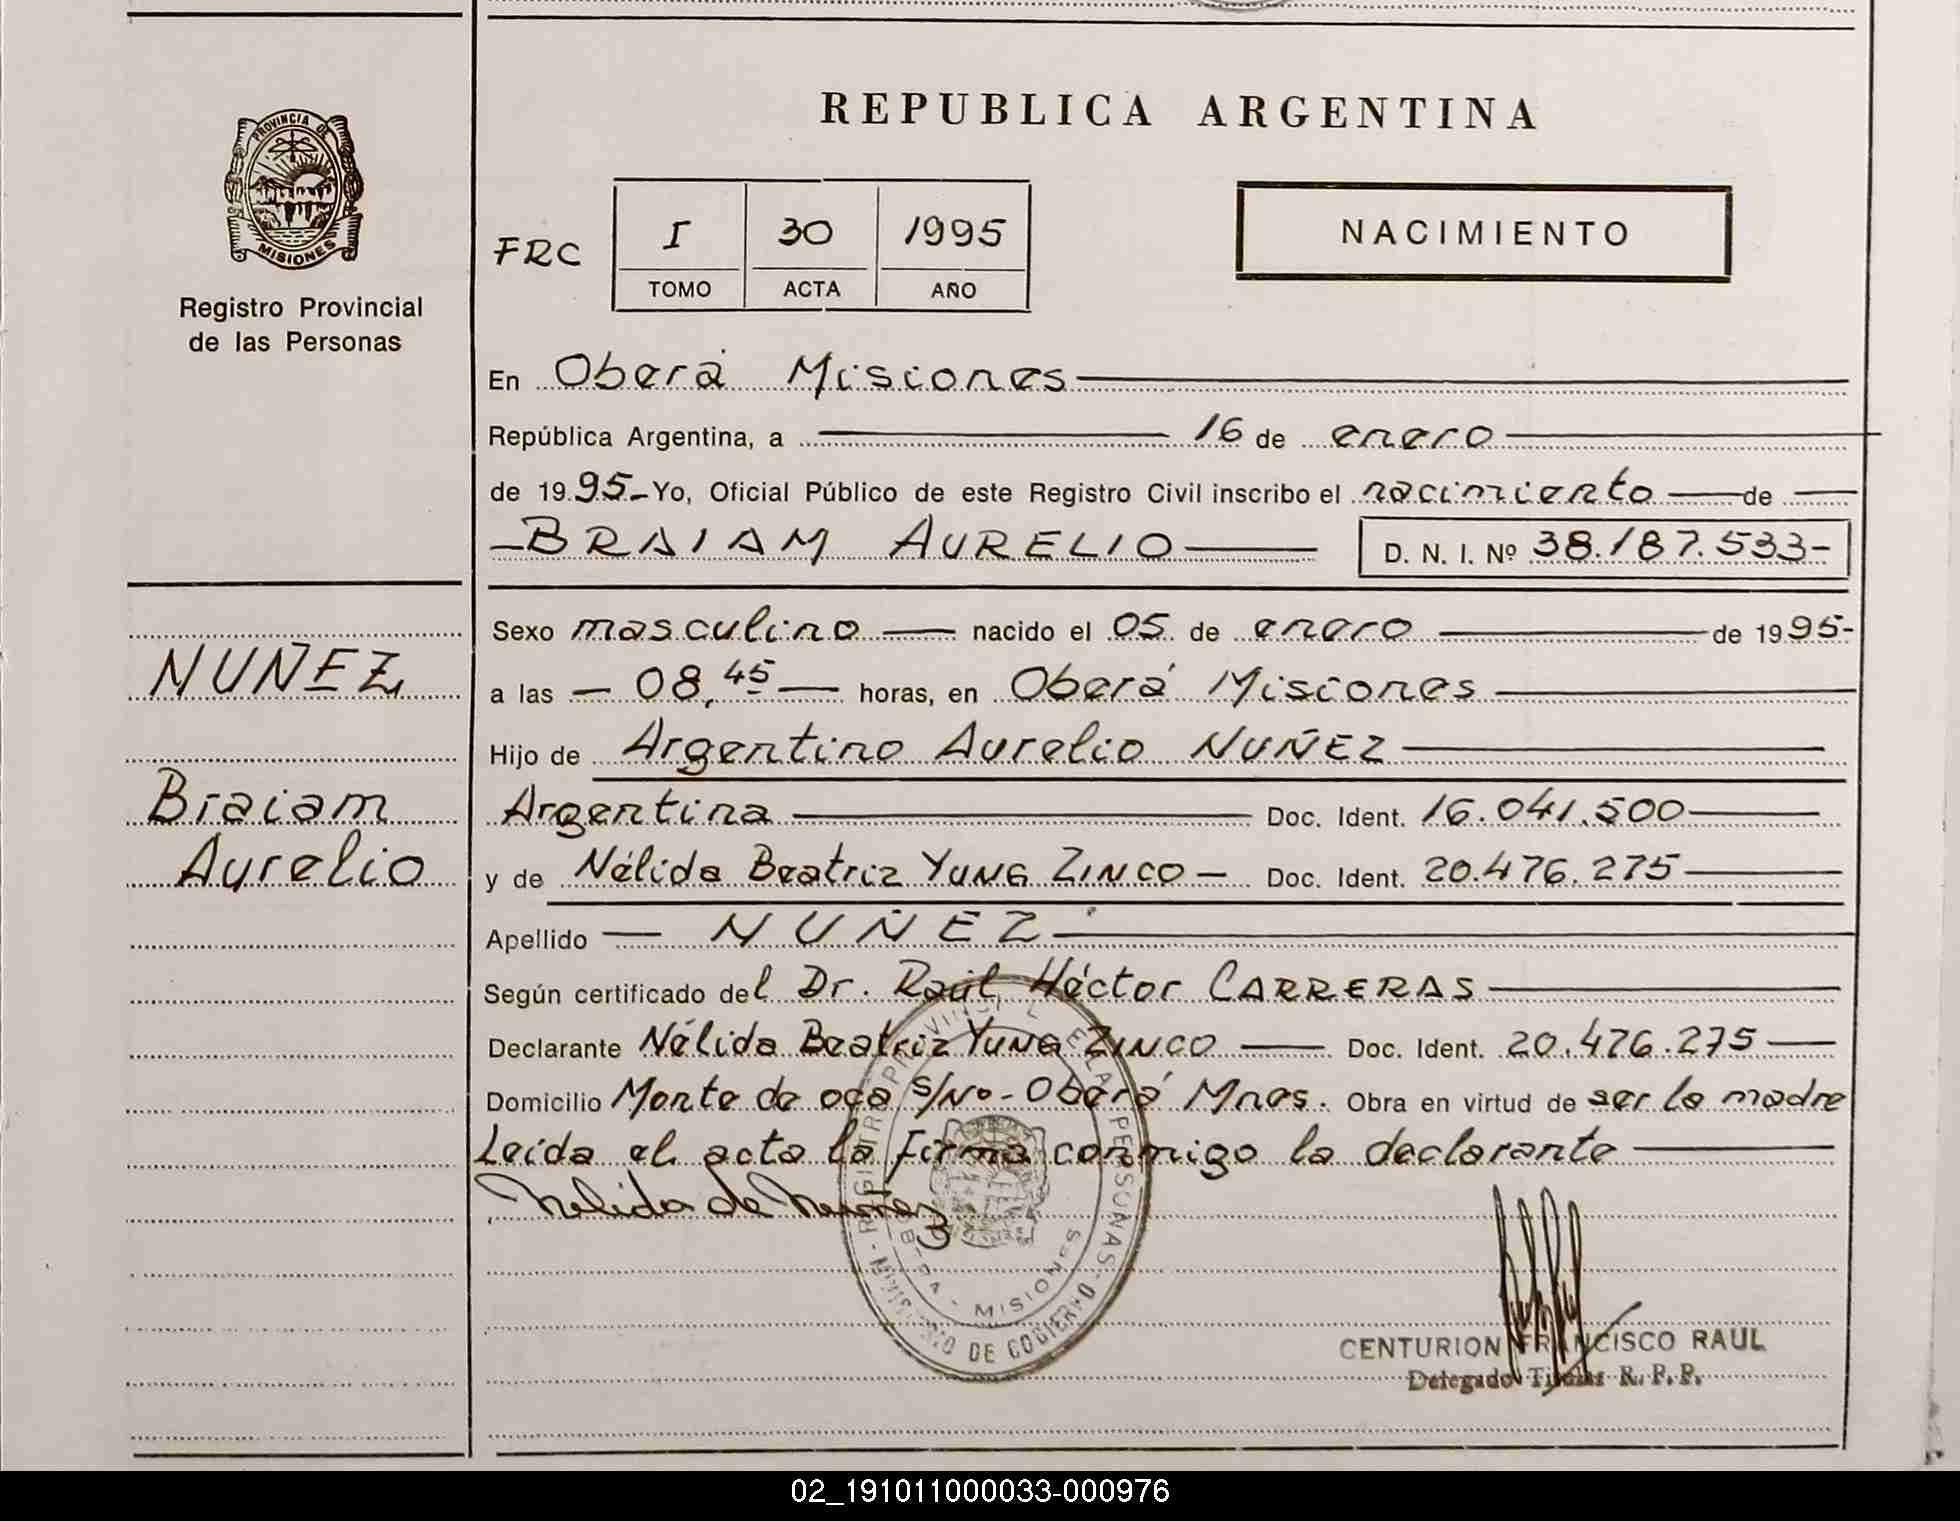 PROVINCIA DE
MISIONES
Registro Provincial
de las Personas
NUÑEZ
Braiam
Aurelio
REPUBLICA ARGENTINA
FRC
I 30 1995
TOMO ACTA AÑO
NACIMIENTO
En Oberá Misiones
República Argentina, a 16 de enero
de 1995 Yo, Oficial Público de este Registro Civil inscribo el nacimiento de
BRAIAM AURELIO D. N. I. Nº 38.187.533-
Sexo masculino nacido el 05 de enero de 1995-
a las 08,45 horas, en Oberá Misiones
Hijo de Argentino Aurelio NUÑEZ
Argentina Doc. Ident. 16.041.500
y de Nélida Beatriz YUNG ZINCO Doc. Ident. 20.476.275
Apellido NUÑEZ
Según certificado del Dr. Raúl Héctor CARRERAS
Declarante Nélida Beatriz YUNG ZINCO Doc. Ident. 20.476.275
Domicilio Monte de oca s/Nº - Oberá Mnes. Obra en virtud de ser la madre
Leída el acta la firma conmigo la declarante
Nelida de Nuñez
OBERA - MISIONES
MINISTERIO DE GOBIERNO
CENTURION FRANCISCO RAUL
Delegado Titular R.P.P.
02_191011000033-000976